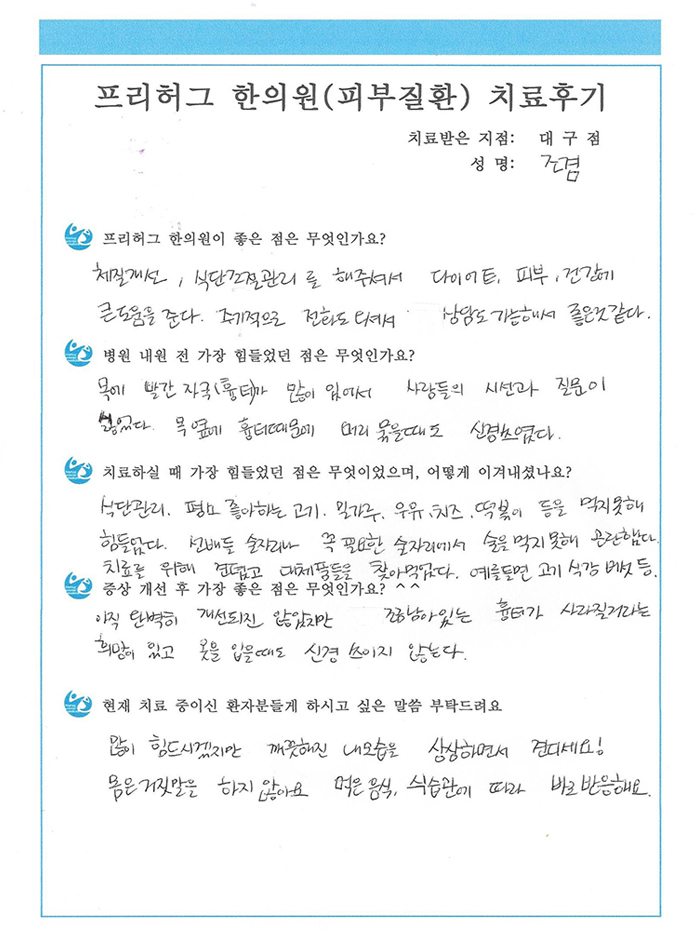 프리허그 한의원(피부질환) 치료후기
치료받은 지점: 대구점
성 명: 조겸
프리허그 한의원이 좋은 점은 무엇인가요?
체질개선, 식단조절관리를 해주셔서 다이어트, 피부, 건강에
큰도움을 준다. 주기적으로 전화도 주셔서 상담도 가능해서 좋은것 같다.
병원 내원 전 가장 힘들었던 점은 무엇인가요?
목에 빨간 자국(흉터)가 많이 있어서 사람들의 시선과 질문이
싫었다. 목 옆에 흉터때문에 머리 묶을때도 신경쓰였다.
치료하실 때 가장 힘들었던 점은 무엇이었으며, 어떻게 이겨내셨나요?
식단관리. 평소 좋아하는 고기, 밀가루, 우유, 치즈, 떡볶이 등을 먹지못해
힘들었다. 선배들 술자리나 꼭 필요한 술자리에서 술을 먹지 못해 곤란했다.
치료를 위해 견뎠고 대체품들을 찾아먹었다. 예를들면 고기 식감 버섯 등.
증상 개선 후 가장 좋은 점은 무엇인가요? ^^
아직 완벽히 개선되진 않았지만 조금남아있는 흉터가 사라질거라는
희망이 있고 옷을 입을때도 신경 쓰이지 않는다.
현재 치료 중이신 환자분들게 하시고 싶은 말씀 부탁드려요
많이 힘드시겠지만 깨끗해진 내모습을 상상하면서 견디세요!
몸은 거짓말을 하지 않아요 먹은 음식, 식습관에 따라 바로 반응해요.